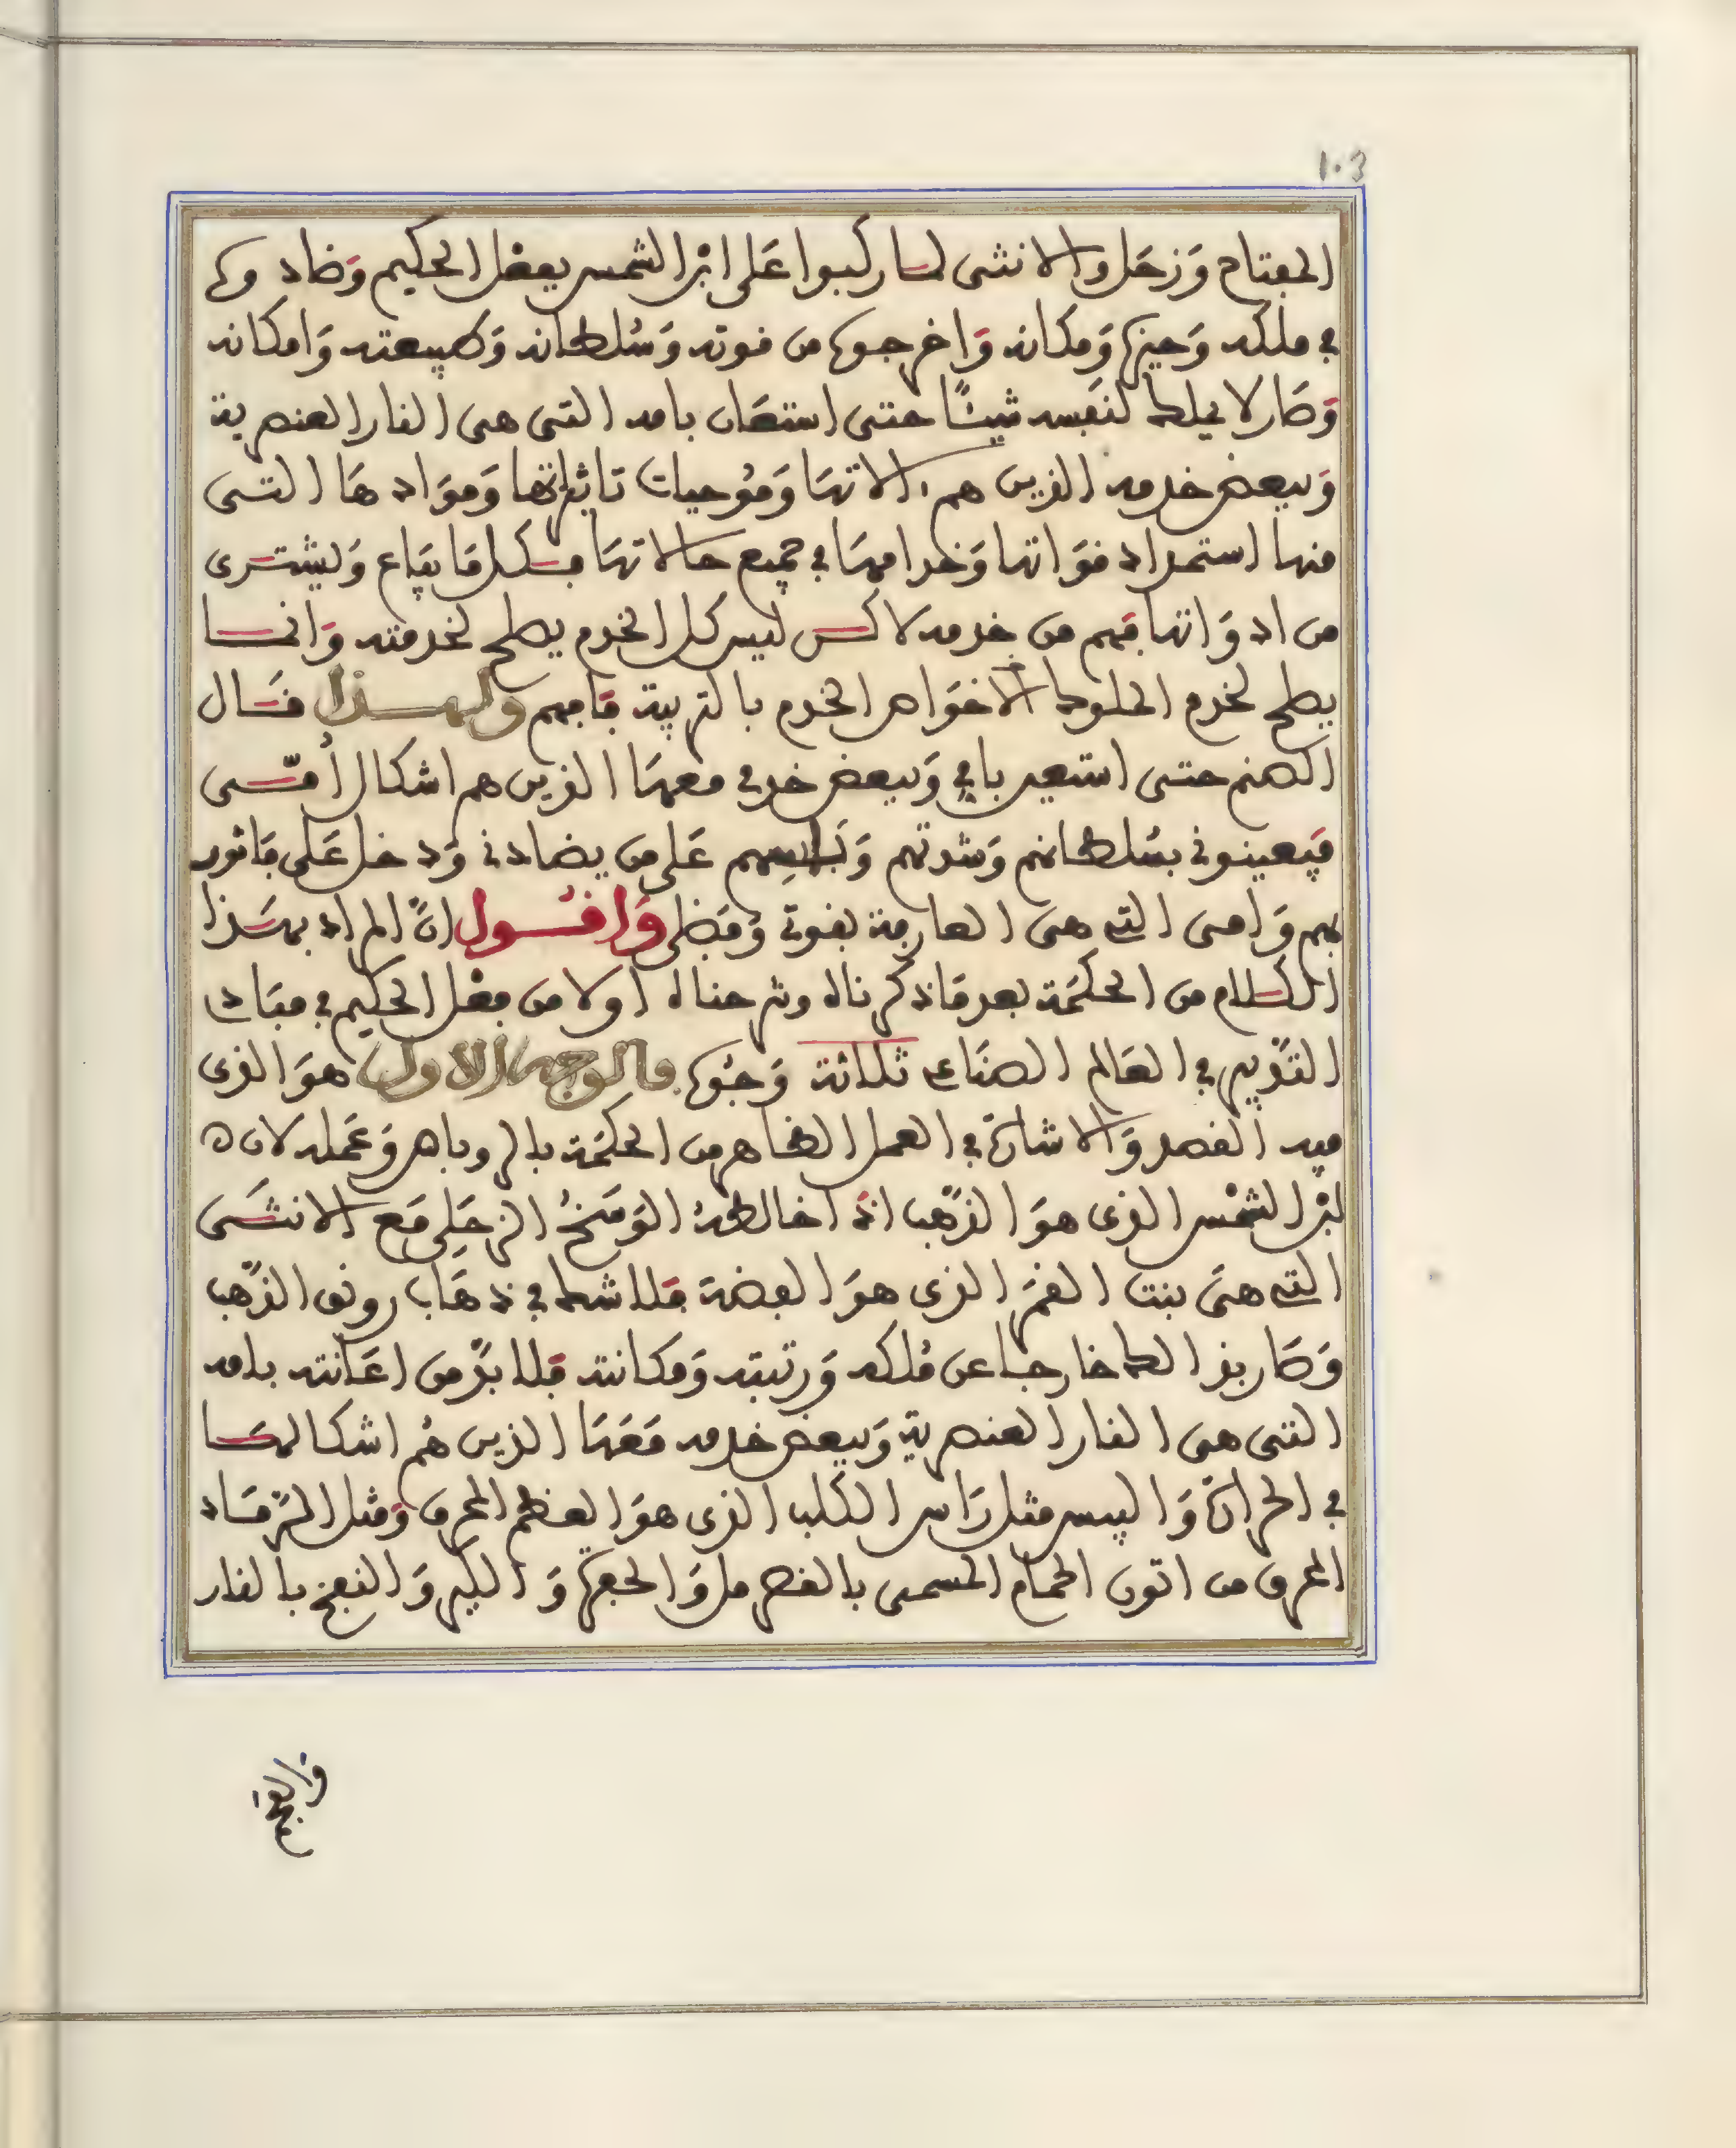 103
المفتاح وَزحَل والانثى لما ركبوا عَلى ابْن الشمس بفعل الحكيم وَضادوه
في ملكه وَحيزه وَمكانه وَاخرجوه من قوته وَسُلطانه وَطبيعته وَامكانه
وَصَار لا يملك لنفَسه شيئًا حتى استعَان بامه التى هى النار العنصرية
وَببعض خدمه الذين هم الاتهَا وَمُوجبات تاثيراتها وَموَادهَا التى
منها استمداد قوَاتها وَخدامهَا في جميع حالاتهَا فكل مَا يبَاع وَيشترى
من ادوَاتها فهم من خدمه لاكن ليس كل الخدم يصلح لخدمته وَانما
يصلح لخدم الملوك الاخوَاص الخدم بالتربية فافهم ولهذا قال
الصنم حتى استعين بامي وَببعض خدمي معهَا الذين هم اشكال أمّى
فيَعينوني بسُلطانهم وَشدتهم وَبَاسِهم عَلى من يضادني وَدخل عَلى فاثور
بهم وَامى التي هى العارفة بقوتي وَفضلى وَاقول انّ المراد بهذا
الكلام من الحكمَة بعد مَا ذكرناه وشرحناه اولا من فعْل الحكيم في مبَادئ
التدْبير في العَالم الصنَاعي ثلاثة وَجُوه فالوجه الاول هوَ الذى
فيه القصد وَالاشارة في العمل الظاهر من الحكمَة بالروباص وَعَمله لان
ابْن الشمْس الذى هوَ الذهَب اذَا خالطهُ الوَسَخُ الزحَلِى مَع الانثَى
التي هىَ بنت القمَر الذى هوَ الفضة فلا شك في ذهَاب رونق الذهَب
وَصَار بذالك خارجا عن مُلكه وَرتبته وَمكانته فلا بدّ من اعَانته بامه
التى هى النار العنصرية وَببعض خدمه مَعَهَا الذين هُم اشكالهَا
في الحرارة وَاليبس مثل رَاس الكلب الذى هوَ العظم المحرق وَمثل الرّمَاد
المحرق من اتون الحمام المسمى بالقصرمل وَالحفرة وَالكير وَالنفخ بالنار
وَالفحم